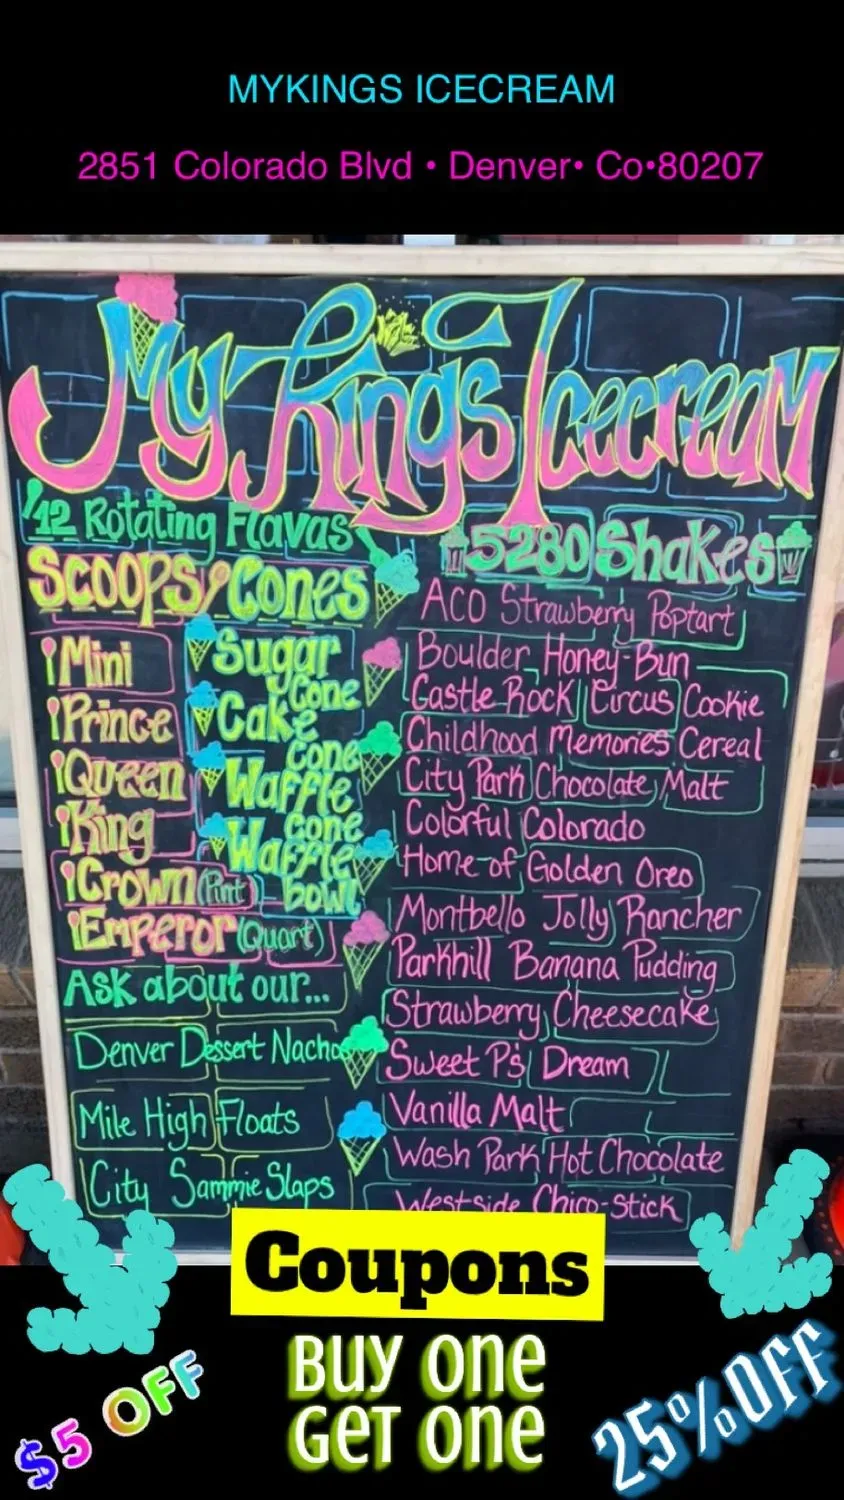 MYKINGS ICECREAM
2851 Colorado Blvd • Denver• Co•80207
My Kings Icecream
12 Rotating Flavas
Scoops/Cones
Mini
Prince
Queen
King
Crown (Pint)
Emperor (Quart)
Sugar Cone
Cake Cone
Waffle Cone
Waffle bowl
Ask about our...
Denver Dessert Nachos
Mile High Floats
City Sammie Slaps
5280 Shakes
ACO Strawberry Poptart
Boulder Honey-Bun
Castle Rock Circus Cookie
Childhood Memories Cereal
City Park Chocolate Malt
Colorful Colorado
Home-of Golden Oreo
Montbello Jolly Rancher
Parkhill Banana Pudding
Strawberry Cheesecake
Sweet P's Dream
Vanilla Malt
Wash Park Hot Chocolate
Westside Chico-Stick
Coupons
$5 OFF
BUY One
GeT One
25% OFF